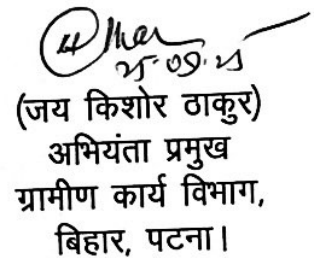 25.09.25
(जय किशोर ठाकुर)
अभियंता प्रमुख
ग्रामीण कार्य विभाग,
बिहार, पटना।